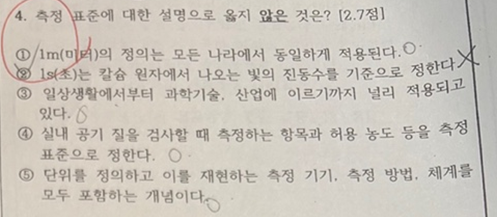 4. 측정 표준에 대한 설명으로 옳지 않은 것은? [2.7점]
① 1m(미터)의 정의는 모든 나라에서 동일하게 적용된다.
② 1s(초)는 칼슘 원자에서 나오는 빛의 진동수를 기준으로 정한다.
③ 일상생활에서부터 과학기술, 산업에 이르기까지 널리 적용되고
있다.
④ 실내 공기 질을 검사할 때 측정하는 항목과 허용 농도 등을 측정
표준으로 정한다.
⑤ 단위를 정의하고 이를 재현하는 측정 기기, 측정 방법, 체계를
모두 포함하는 개념이다.